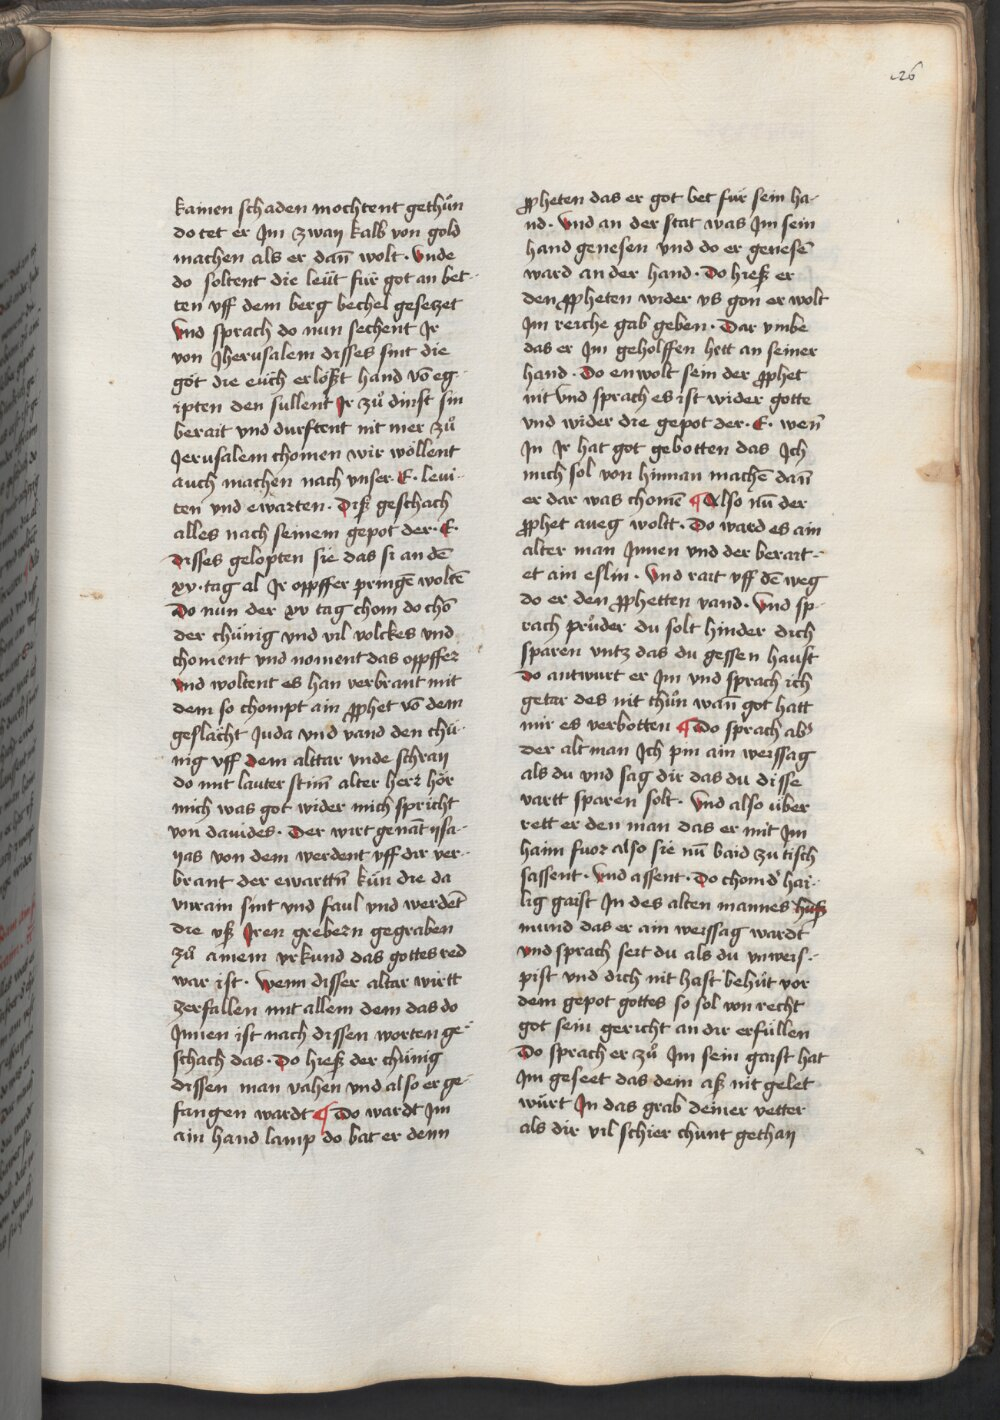 26
kainen schaden mochtent gethůn
do tet er Jm zway kalb von gold
machen als er dan̄ wolt · Vnde
do soltent die leüt für got an bet-
ten vff dem berg bechel gesetzet
Vnd sprach do nun sechent Jr
von Jherusalem disses sint die
göt die eüch erlößt hand vō eg-
ipten den sullent Jr zů dinst sin
berait vnd durftent nit mer zů
Jerusalem chomen wir wöllent
auch machen nach vnser · E · leui-
ten vnd ewarten · Diß geschach
alles nach seinem gepot der · E ·
Disses gelopten sie das si an dē
xv · tag al Jr oppffer pringē woltē
Do nun der xv tag chom do chō
der chünig vnd vil volckes vnd
choment vnd noment das oppffer
Vnd woltent es han verbrant mit
dem so chompt ain ꝓphet vō dem
geslächt Juda vnd vand den chü-
nig vff dem alttar vnde schray
do mit lauter stim̄ alter herr hör
mich was got wider mich spricht
von dauides · Der wirt genāt ysa-
yas von dem werdent vff dir ver-
brant der ewarttn̄ kün die da
vnrain sint vnd faul vnd werdet̄
die vß Jren grebern gegraben
zů ainem vrkund das gottes red
war ist · Wenn disser altar wirtt
zerfallen mit allem dem das do
Jnnen ist nach dissen worten ge-
schach das · Do hieß der chünig
dissen man vahen vnd also er ge-
fangen wardt ¶ Do wardt Jm
ain hand lamp do bat er denn
ꝓpheten das er got bet für sein ha-
nd · Vnd an der stat was Jm sein
hand genesen vnd do er genesē
ward an der hand · Do hieß er
den ꝓpheten wider vs gon er wolt
Jm reiche gab geben · Dar vmbe
das er Jm geholffen hett an seiner
hand · Do enwolt sein der ꝓphet
nit vnd sprach es ist wider gotte
vnd wider die gepot der · E · wen̄
Jn Jr hat got gebotten das Jch
mich sol von hinnan machē dan̄
er dar was chomē ¶ Also nū der
ꝓphet aueg woltt · Do ward es ain
alter man Jnnen vnd der berait-
et ain eslin · Vnd rait vff dē weg
do er den ꝓphetten vand · Vnd sp-
rach průder du solt hinder dich
sparen vntz das du gessen haust
Do antwurt er Jm vnd sprach ich
getar des nit thůn wan̄ got hatt
mir es verbotten ¶ Do sprach ab
der alt man Jch pin ain weissag
als du vnd sag dir das du disse
vartt sparen solt · Vnd also über
rett er den man das er mit Jm
haim fuor also sie nū baid zu tisch
sassent · Vnd assent · Do chom d' hai-
lig gaist Jn des alten mannes huß
mund das er ain weissag wardt
Vnd sprach seit du als du vnweis-
pist vnd dich nit hast behůt vor
dem gepot gottes so sol von recht
got sein gericht an dir erfüllen
Do sprach er zů Jm sein gaist hat
Jm geseet das dem aß nit gelet
würt Jn das grab deiner vetter
als dir vil schier chunt gethan